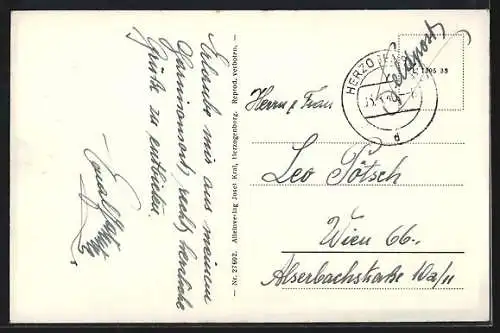 Erlaube mir aus meinem
Garnisonsort, recht herzliche
Grüße zu entbieten.
— Nr. 27602. Alleinverlag Josef Kral, Herzogenburg. Reprod. verboten. —
Feldpost
HERZOGENBURG
d
Herrn & Frau
Leo Pötsch
Wien 66.
Alserbachstraße 10a/11